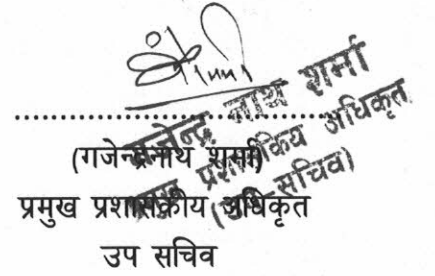 गजेन्द्र नाथ शर्मा
प्रमुख प्रशासकीय अधिकृत
(उप-सचिव)
.................................
(गजेन्द्रनाथ शर्मा)
प्रमुख प्रशासकीय अधिकृत
उप सचिव